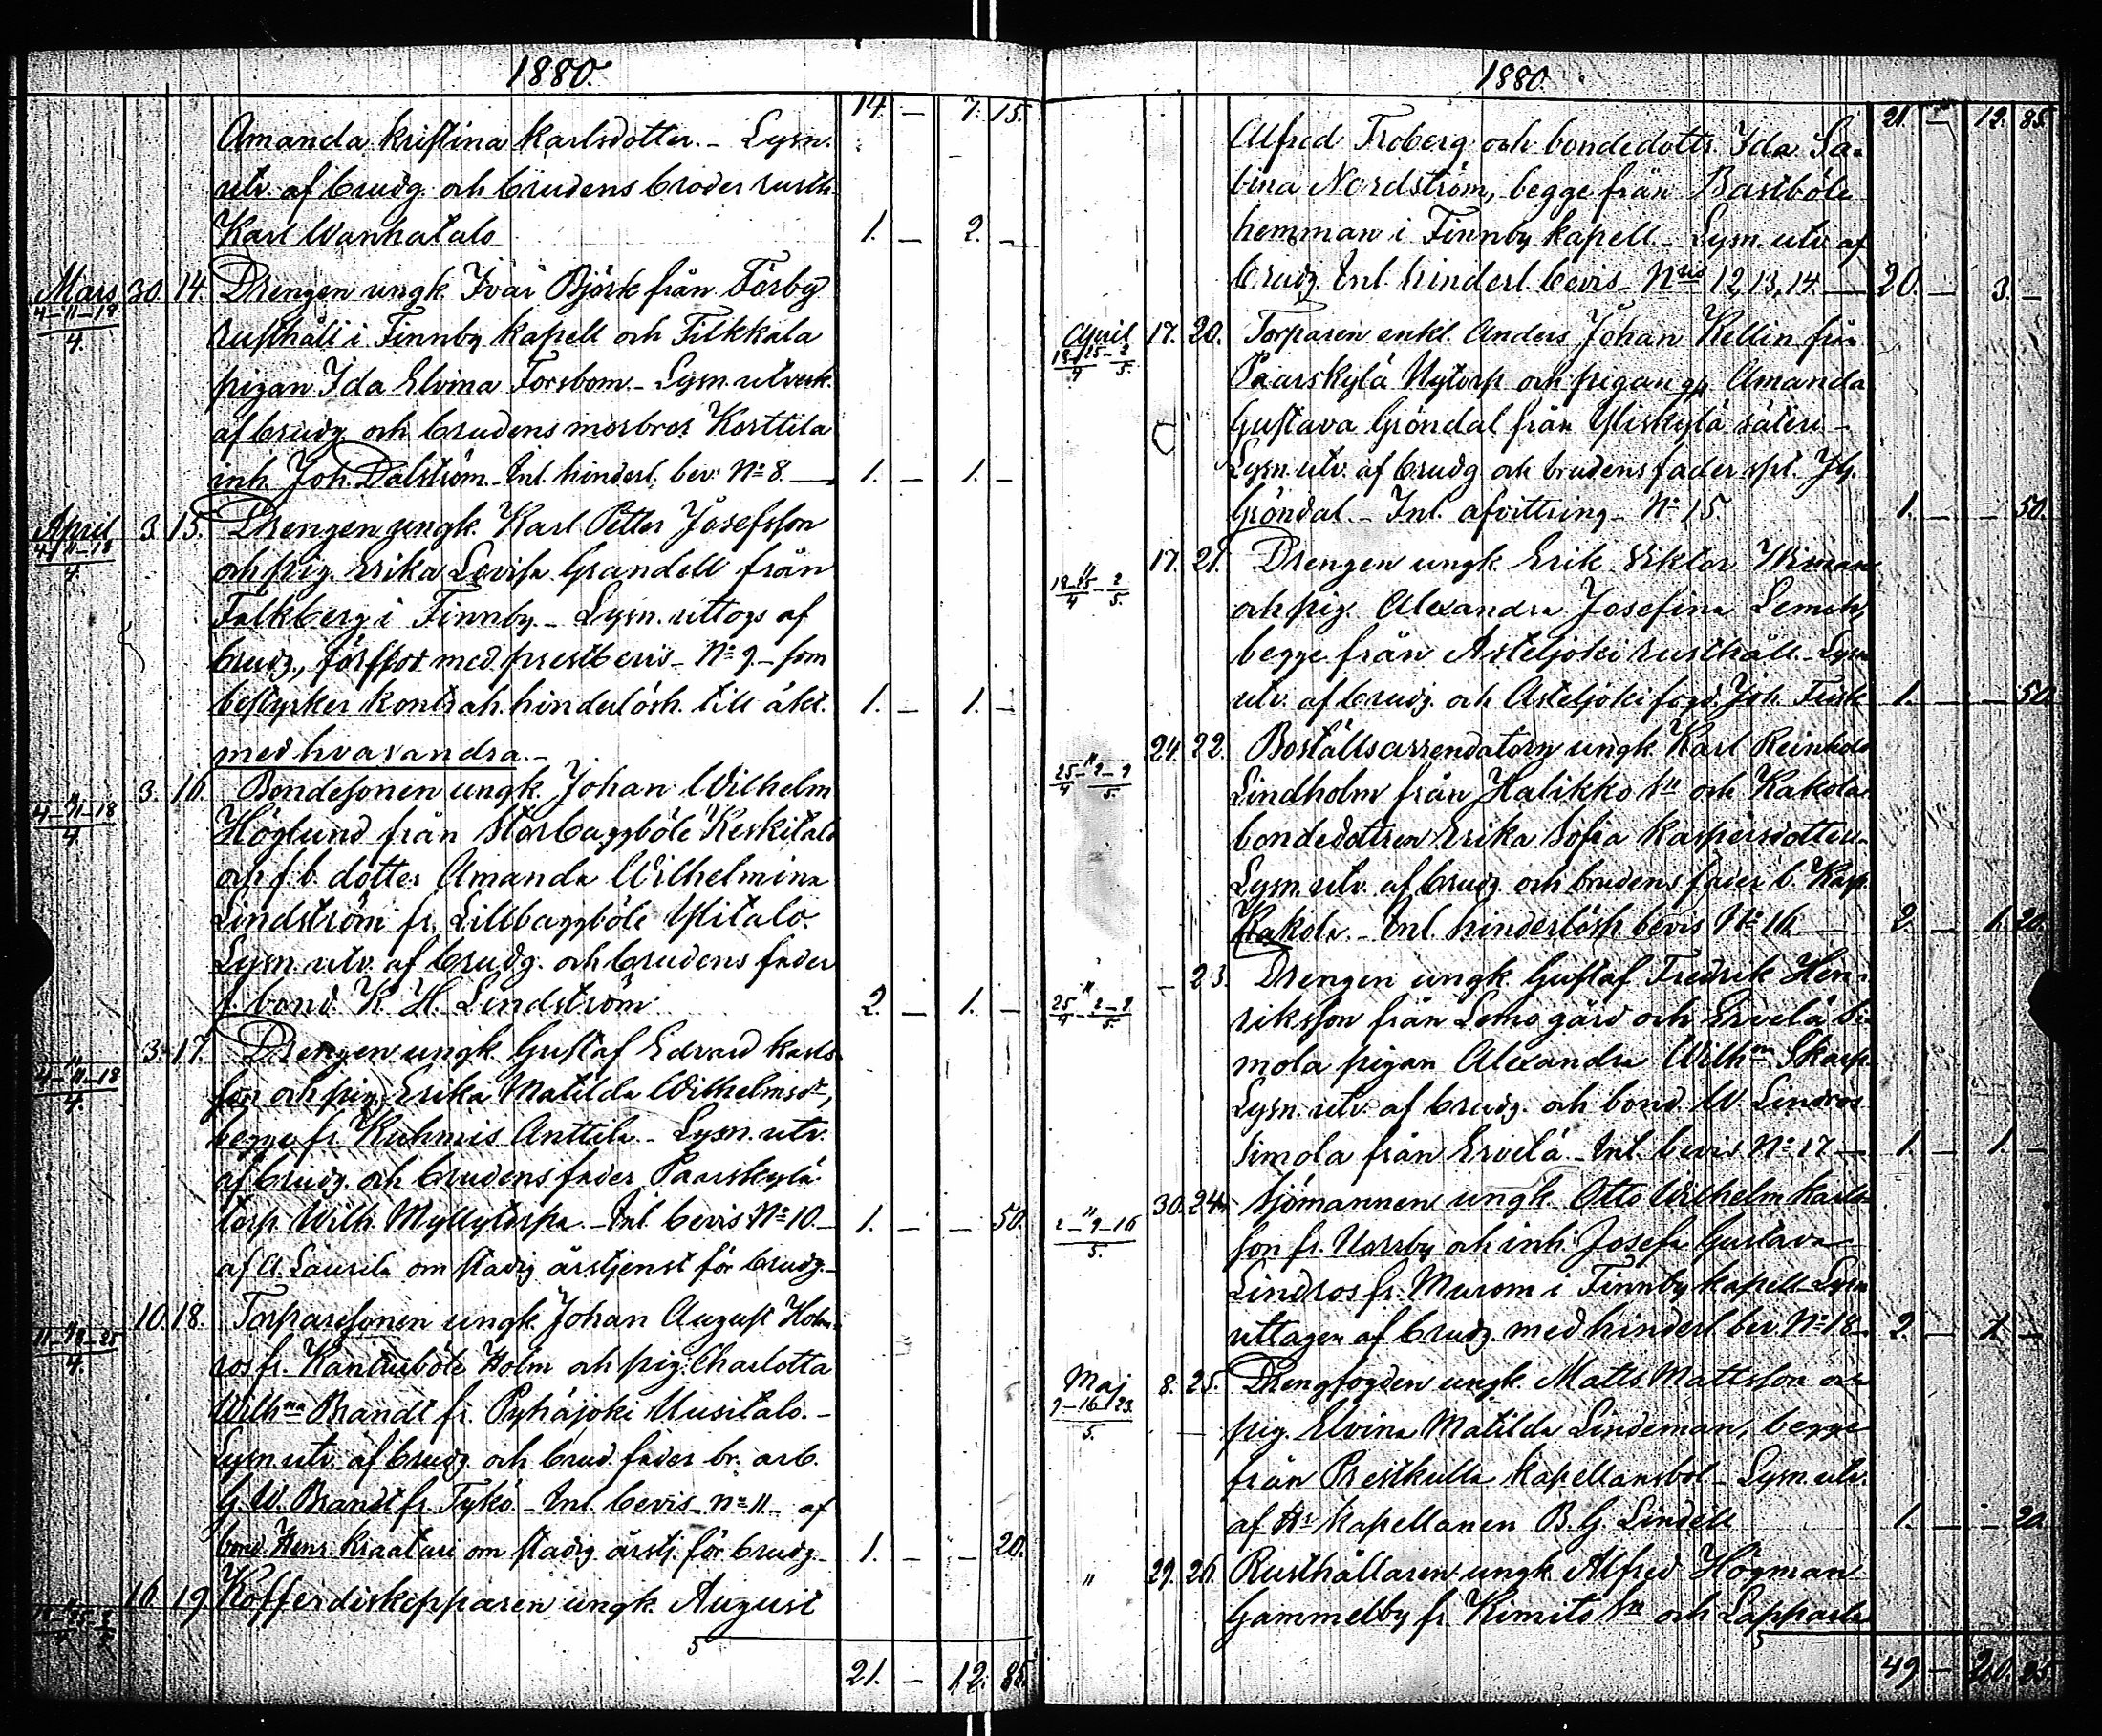 1880.
14. — 7. 15.
Amanda Kristina Karlsdotter. – Lysn.
utv. af brudg. och brudens broder rusth.
Karl Wanhatalo 1. — 2. —
Mars 30. 14. Drengen ungk. Ivar Björk från Förby
4–11–18/4. rusthåll i Finnby kapell och Tilkkala
pigan Ida Elvina Forsbom. – Lysn. utverk.
af brudg. och brudens morbror Korttila
inh. Joh. Dalström. – Inl. hinderl. bev. No 8. — 1. — 1. —
April 3. 15. Drengen ungk. Karl Petter Josefsson
4–11–18/4. och pig. Erika Lovisa Grandell från
Falkberg i Finnby. – Lysn. uttogs af
brudg., försedd med prestbevis – No 9 – som
bestyrker kontrah. hinderlösh. till äkt. 1. — 1. —
med hvarandra. –
" 3. 16. Bondesonen ungk. Johan Wilhelm
4–11–18/4 Höglund från Storbaggböle Keskitalo
och f. b. dotter Amanda Wilhelmina
Lindström fr. Lillbaggböle Ylitalo.
Lysn. utv. af brudg. och brudens fader
f. bond. K. H. Lindström 2. — 1. —
" 3. 17. Drengen ungk. Gustaf Edvard Karls-
4–11–18/4. son och pig. Erika Matilda Wilhelmsdr,
begge fr. Kuhmis Anttila – Lysn. utv.
af brudg. och brudens fader Paarskylä
torp. Wilh. Myllytorpa. – Inl. bevis No 10. – 1. — — 50.
af A. Laurila om stadig årstjenst för brudg. –
" 10. 18. Torparesonen ungk. Johan August Holm-
11–18–25/4. ros fr. Kanturböle Holm och pig. Charlotta
Wilhna Brandt fr. Pyhäjoki Uusitalo. –
Lysn. utv. af brudg. och brud. fader br. arb.
G. W. Brandt fr. Tykö. – Inl. bevis – No 11 – af
bond. Henr. Kraaturi om stadig årstj. för brudg. – 1. — — 20.
" 16. 19. Kofferdiskepparen ungk. August
21. — 12. 85.
1880.
21. — 12. 85.
Alfred Froberg och bondedottr. Ida Sa-
bina Nordström, begge från Bastböle
hemman i Finnby kapell. – Lysn. utv. af
brudg. Inl. hinderl. bevis – Nris 12, 13, 14. — 20. — 3. —
April 17. 20. Torparen enkl. Anders Johan Kellin från
18–25/4–2/5. Paarskylä Nytorp och pigan Amanda
Gustava Gröndal från Yliskylä säteri. –
Lysn. utv. af brudg. och brudens fader spl. J. G.
Gröndal. – Inl. afvittring – No 15 1. — — 50.
" 17. 21. Drengen ungk. Erik Viktor Wiman
18–25/4–2/5. och pig. Alexandra Josefina Lemeh,
begge från Asteljoki rusthåll. – Lysn.
utv. af brudg. och Asteljoki fogd. Joh. Fisk 1. — — 50.
" 24. 22. Boställsarrendatorn ungk. Karl Reinhold
25/4–2–9/5. Lindholm från Halikko sn och Kakola
bondedottren Erika Sofia Kaspersdotter. –
Lysn. utv. af brudg. och brudens fader b. Kasp.
Kakola. – Inl. hinderlösh. bevis No 16. — 2. — 1. 20.
" – 23. Drengen ungk. Gustaf Fredrik Hen-
25/4–2–9/5. riksson från Lemo gård och Ervelä Si-
mola pigan Alexandra Wilhna Skarp.
Lysn. utv. af brudg. och bond. W. Lindros
Simola från Ervelä. – Inl. bevis No 17 — 1. — 1. —
" 30. 24. Sjömannen ungk. Otto Wilhelm Karls-
2–9–16/5. son fr. Norrby och inh. Josefa Gustava
Lindros fr. Murom i Finnby kapell – Lysn.
uttagen af brudg. med hinderl. bev. No 18 – 2. — 1. —
Maj 8. 25. Drengfogden ungk. Matts Mattsson och
9–16–23/5. pig. Elvina Matilda Lindeman, begge
från Prestkulla kapellansbol – Lysn. utv.
af Hr kapellanen B. G. Lindell 1. — — 20.
" 29. 26. Rusthållaren ungk. Alfred Högman
Gammelby fr. Kimito sn och Lapparla
49 — 20. 25